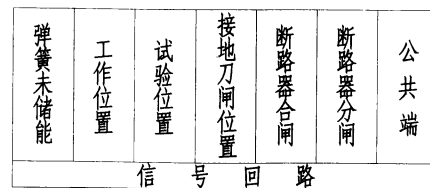 弹簧未储能
工作位置
试验位置
接地刀闸位置
断路器合闸
断路器分闸
公共端
信号回路